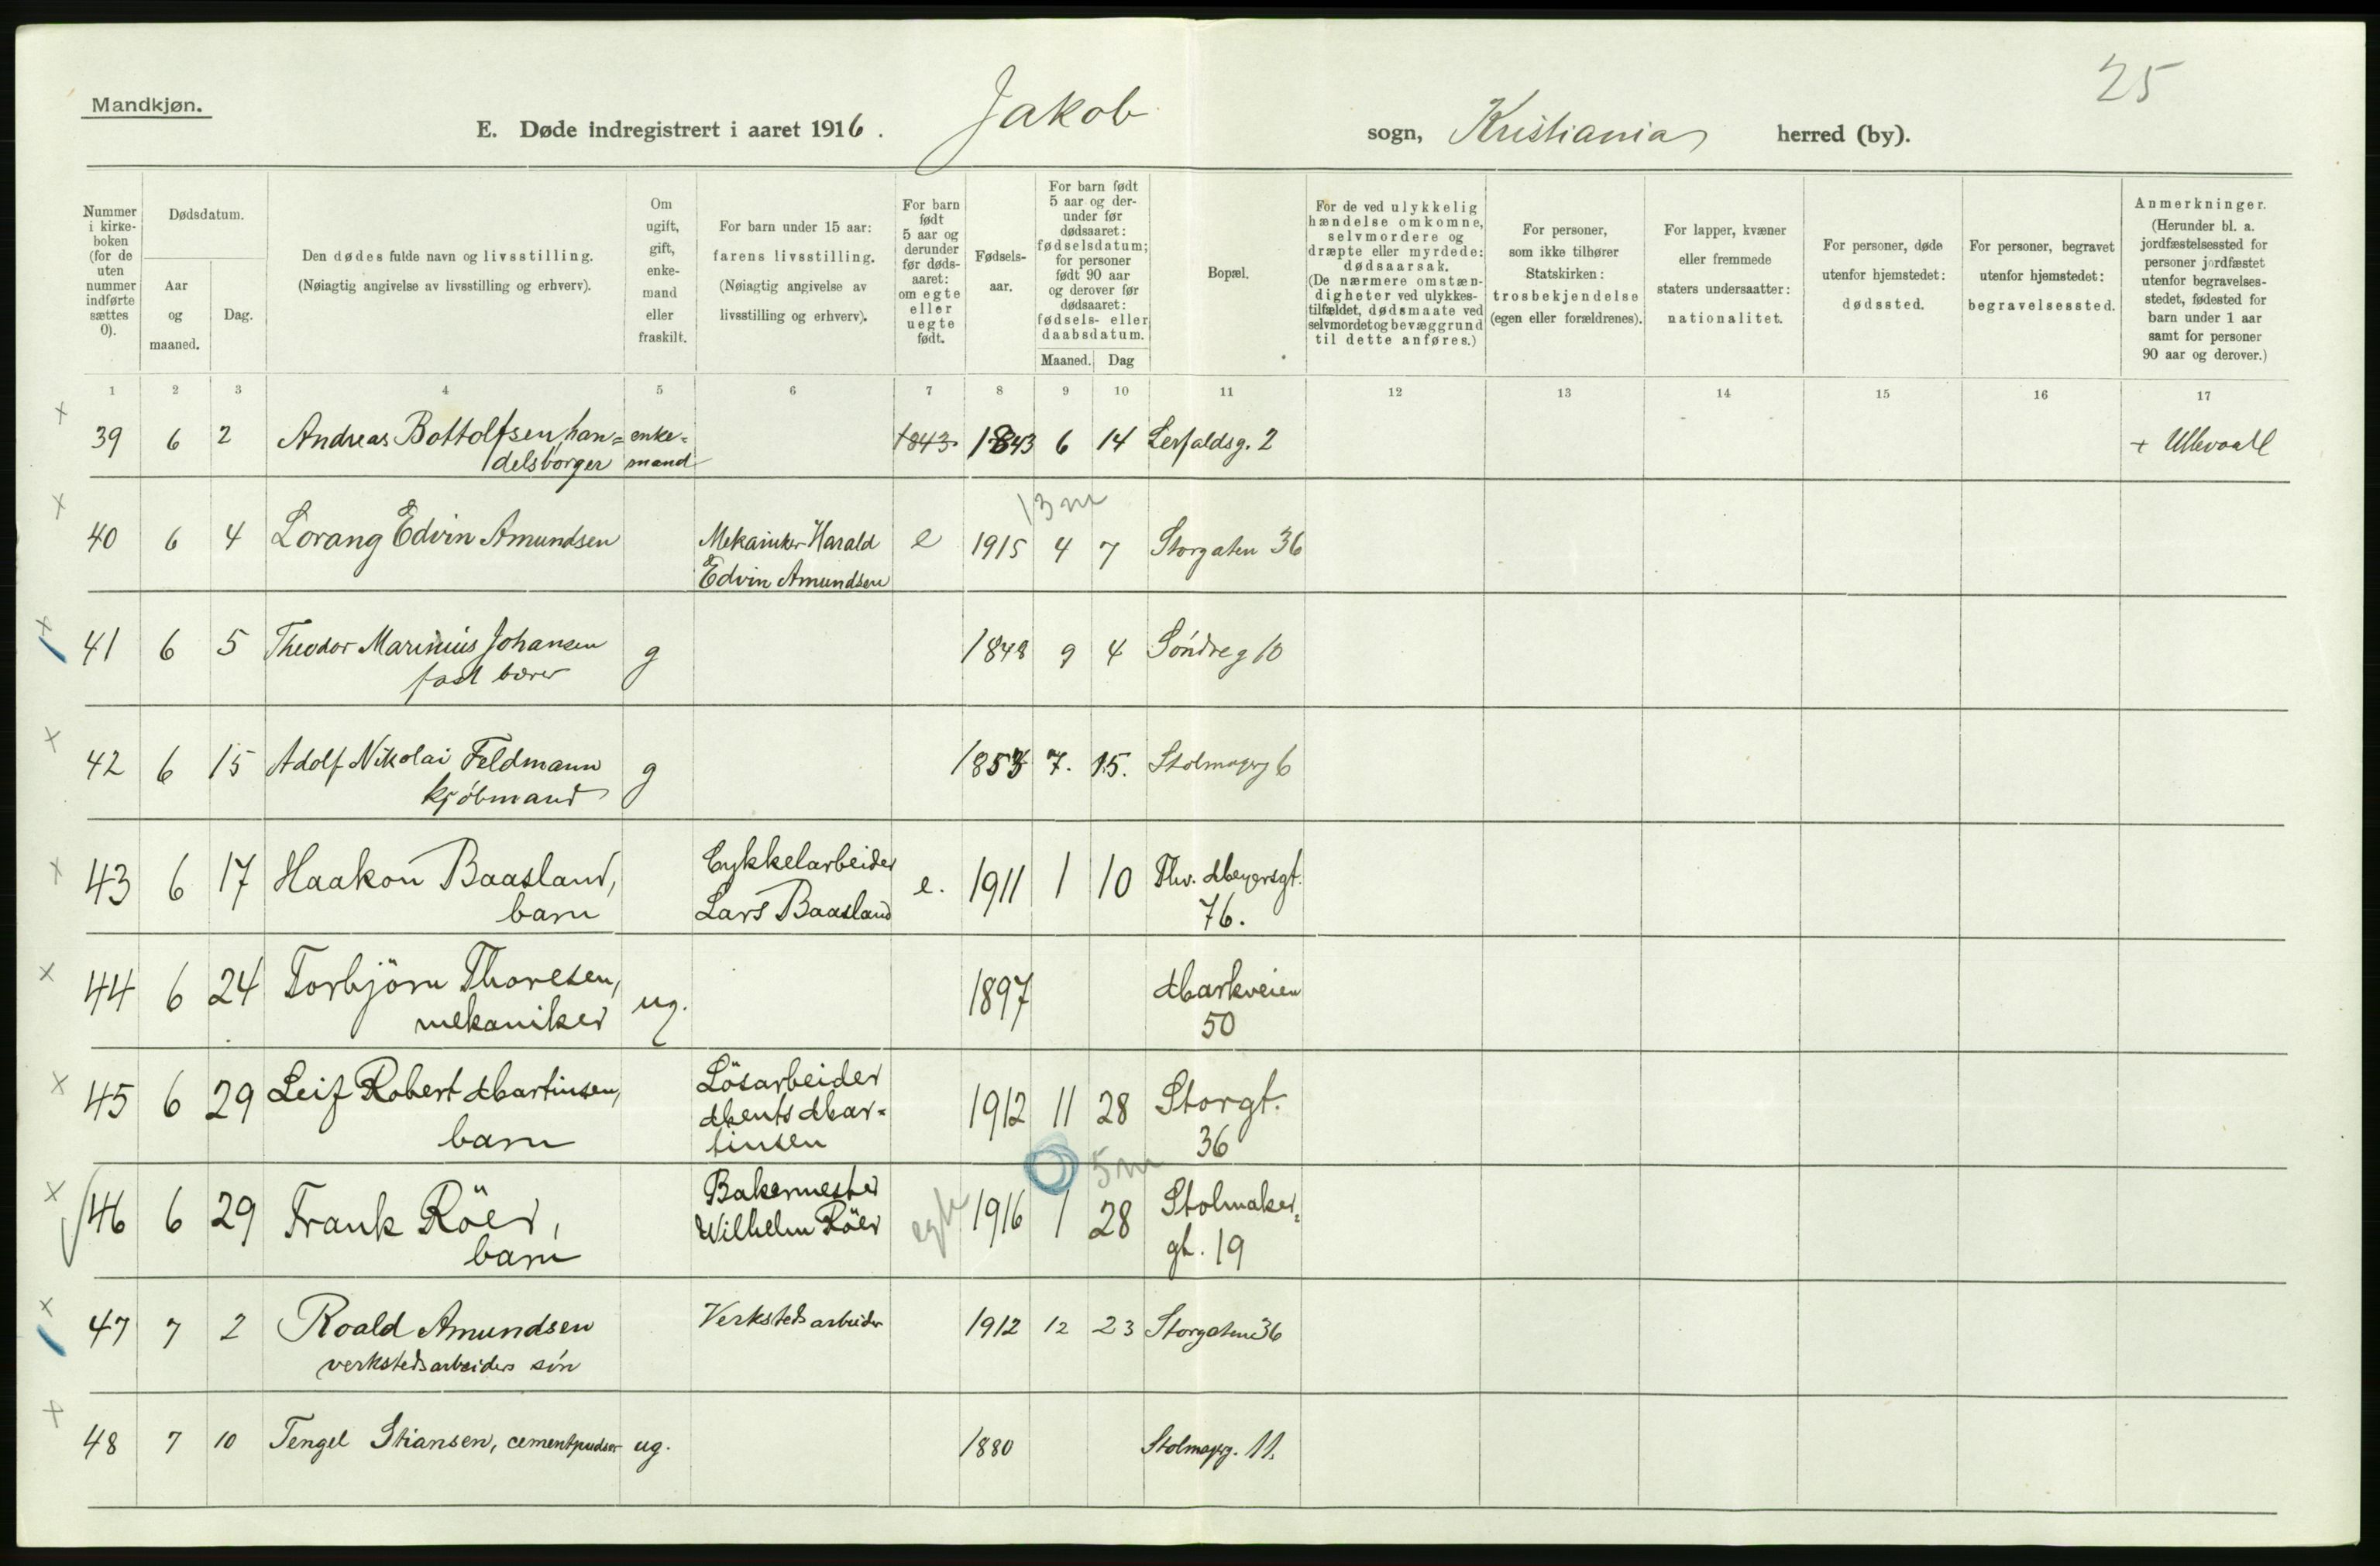 25
Mandkjøn.
E. Døde indregistrert i aaret 1916. Jakob sogn, Kristiania herred (by).
Nummer i kirkeboken (for de uten nummer indførte sættes 0).
Dødsdatum.
Aar og maaned.
Dag.
Den dødes fulde navn og livsstilling.
(Nøiagtig angivelse av livsstilling og erhverv).
Om ugift, gift, enkemand eller fraskilt.
For barn under 15 aar:
farens livsstilling.
(Nøiagtig angivelse av livsstilling og erhverv).
For barn født 5 aar og derunder før dødsaaret: om egte eller uegte født.
Fødselsaar.
For barn født 5 aar og derunder før dødsaaret: fødselsdatum; for personer født 90 aar og derover før dødsaaret: fødsels- eller daabsdatum.
Maaned. Dag
Bopæl.
For de ved ulykkelig hændelse omkomne, selvmordere og dræpte eller myrdede: dødsaarsak.
(De nærmere omstændigheter ved ulykkestilfældet, dødsmaate ved selvmord et og bevæggrund til dette anføres.)
For personer, som ikke tilhører Statskirken: trosbekjendelse (egen eller forældrenes).
For lapper, kvæner eller fremmede staters undersaatter: nationalitet.
For personer, døde utenfor hjemstedet: dødssted.
For personer, begravet utenfor hjemstedet: begravelsessted.
Anmerkninger.
(Herunder bl. a. jordfæstelsessted for personer jordfæstet utenfor begravelsesstedet, fødested for barn under 1 aar samt for personer 90 aar og derover.)
1 2 3 4 5 6 7 8 9 10 11 12 13 14 15 16 17
x 39 6 2 Andreas Bottolfsen, han= enke= 1843 1843 6 14 Lerfaldsg. 2 + Ullevaal
delsborger mand
13 m
x 40 6 4 Lorang Edvin Amundsen Mekaniker Harald e 1915 4 7 Storgaten 36
Edvin Amundsen
x 41 6 5 Theodor Marinius Johansen g 1848 9 4 Söndreg 10
fast bærer
x 42 6 15 Adolf Nikolai Feldmann g 1853 7. 15. Stolmagerg 6
kjöbmand
x 43 6 17 Haakon Baasland, Cykkelarbeider e. 1911 1 10 Thv. Meyersgt.
barn Lars Baasland 76.
x 44 6 24 Torbjörn Thoresen, ug. 1897 Markveien
mekaniker 50
x 45 6 29 Leif Robert Martinsen, Lösarbeider 1912 11 28 Storgt.
barn Ments Mar= 36
tinsen
5 m
x 46 6 29 Frank Röer, Bakermester egte 1916 1 28 Stolmaker=
barn Wilhelm Röer gt. 19
x 47 7 2 Roald Amundsen Verkstedsarbeider 1912 12 23 Storgaten 36
verkstedsarbeiders sön
x 48 7 10 Tengel Stiansen, cementpudser ug. 1880 Stolmagerg. 11.